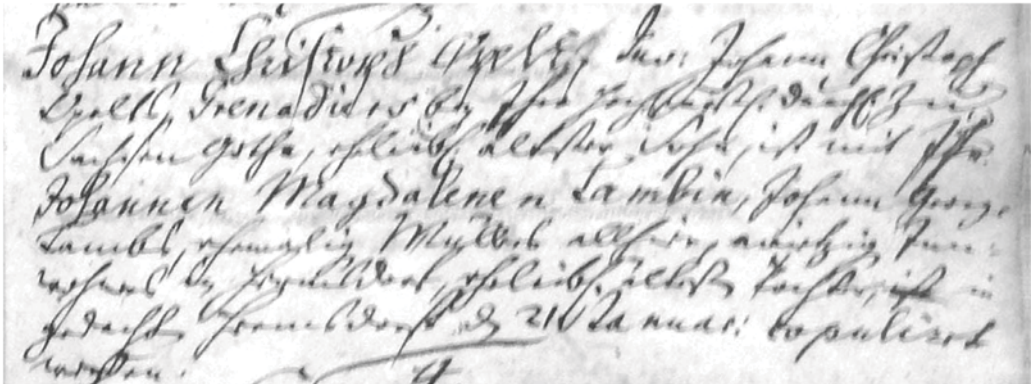 Johann Christoph Apelt, Juv: Johann Christoph
Apelts, Grenadiers bey Ihro Hochfürstl. Durchl. zu
Sachsen Gotha, ehelich ältester Sohn, ist mit Jfr.
Johannen Magdalenen Lambin, Johann Georg
Lambs, ehemalig Müllers allhier, anietzig Inn-
wohners in Hermsdorf, ehelich. ältest Tochter, ist in
gedacht Hermsdorf d 21 Januar: copuliret
worden.